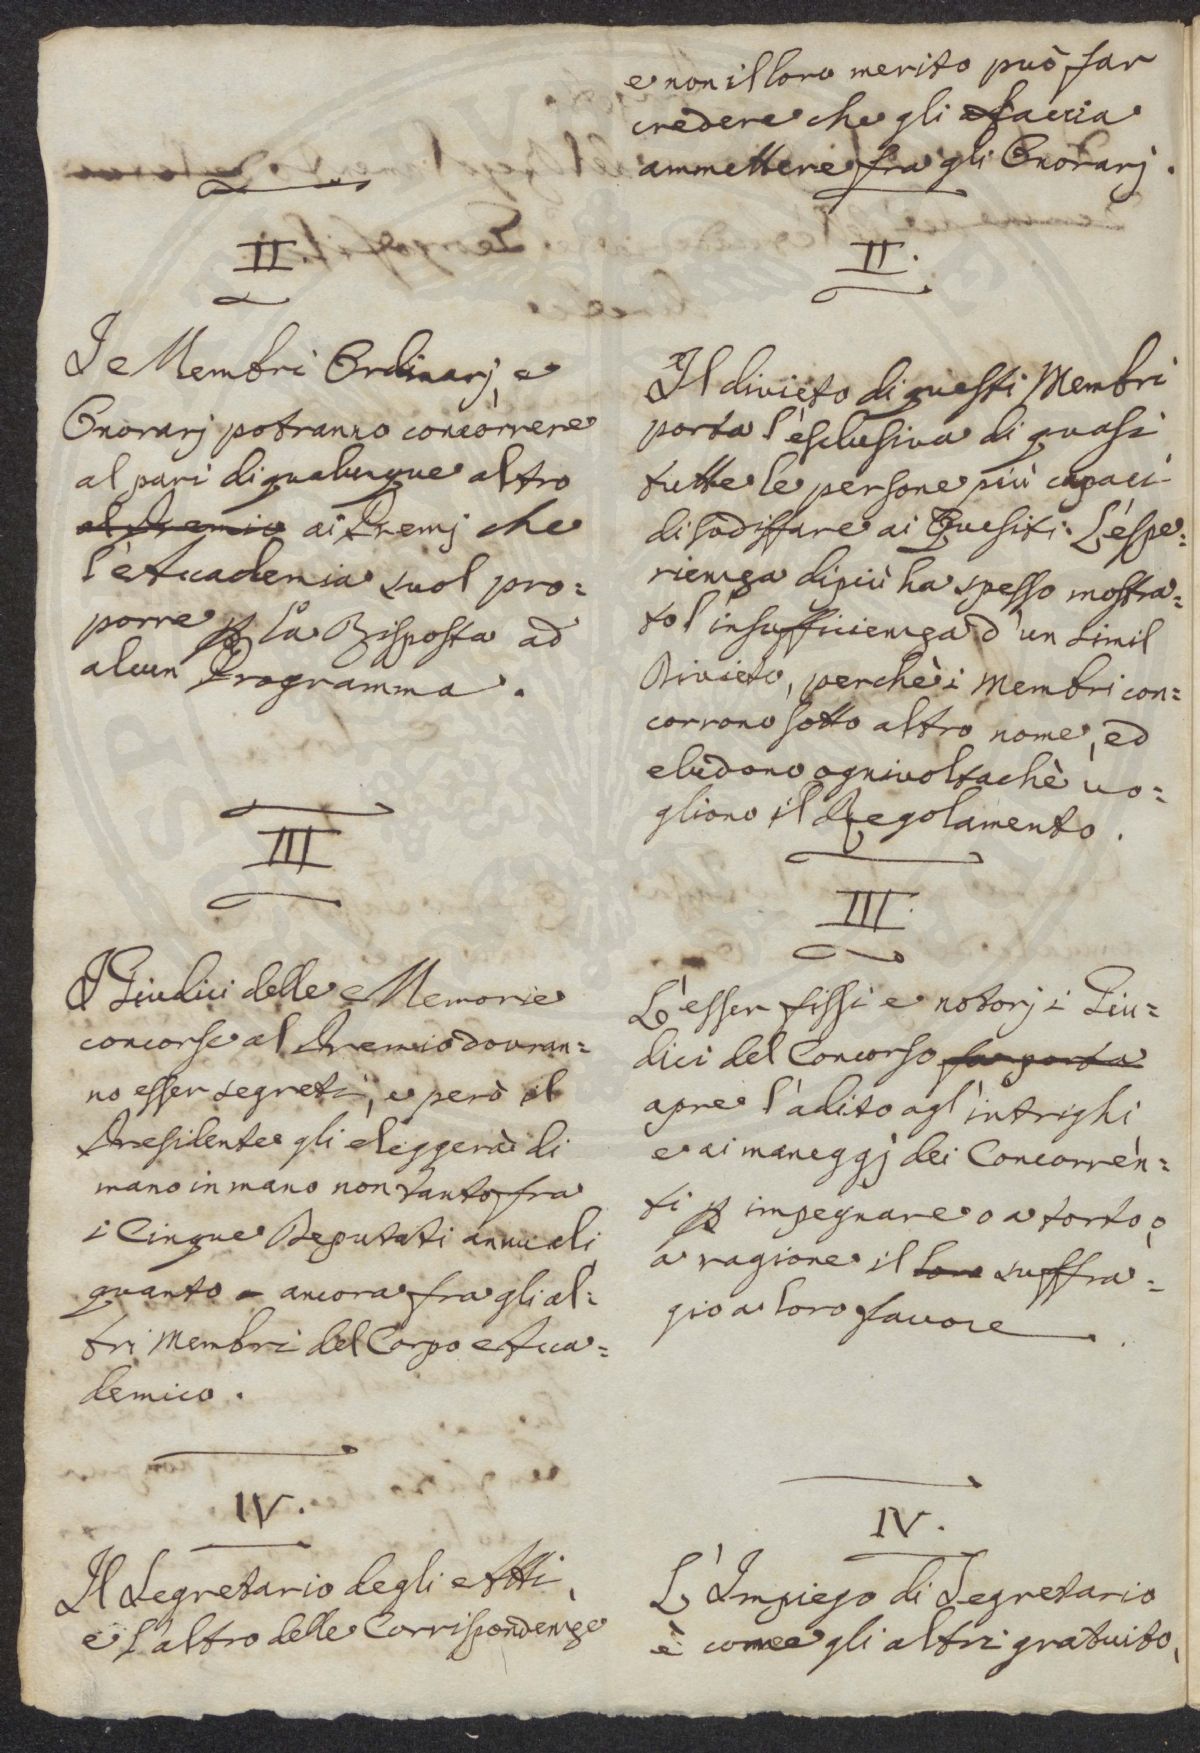 II.
I Membri Ordinarj, e
Onorarj potranno concorrere
al pari di qualunque altro
al Premio ai Premj che
l'Accademia suol pro=
porre p la Risposta ad
alcun Programma.
III
I Giudici delle Memorie
concorse al Premio dovran=
no esser segreti, e però il
Presidente gli eleggerà di
mano in mano non tanto fra
i Cinque Deputati annuali,
quanto ancora fra gli al=
tri Membri del Corpo Acca=
demico.
IV.
Il Segretario degli Atti,
e l'altro delle Corrispondenze
e non il loro merito può far
credere che gli faccia
ammettere fra gli Onorarj.
II.
Il divieto di questi Membri
porta l'esclusiva di quasi
tutte le persone più capaci
di sodisfare ai Quesiti. L'espe=
rienza di più ha spesso mostra=
to l'insufficienza d'un simil
Divieto, perchè i Membri con=
corrono sotto altro nome, ed
eludono ognivoltachè vo=
gliono il Regolamento.
III.
L'esser fissi e notorj i Giu=
dici del Concorso
apre l'adito agl'intrighi
e ai maneggj dei Concorren=
ti p impegnare o a torto, o
a ragione il loro suffra=
gio a loro favore
IV.
L'Impiego di Segretario
è come gli altri gratuito,